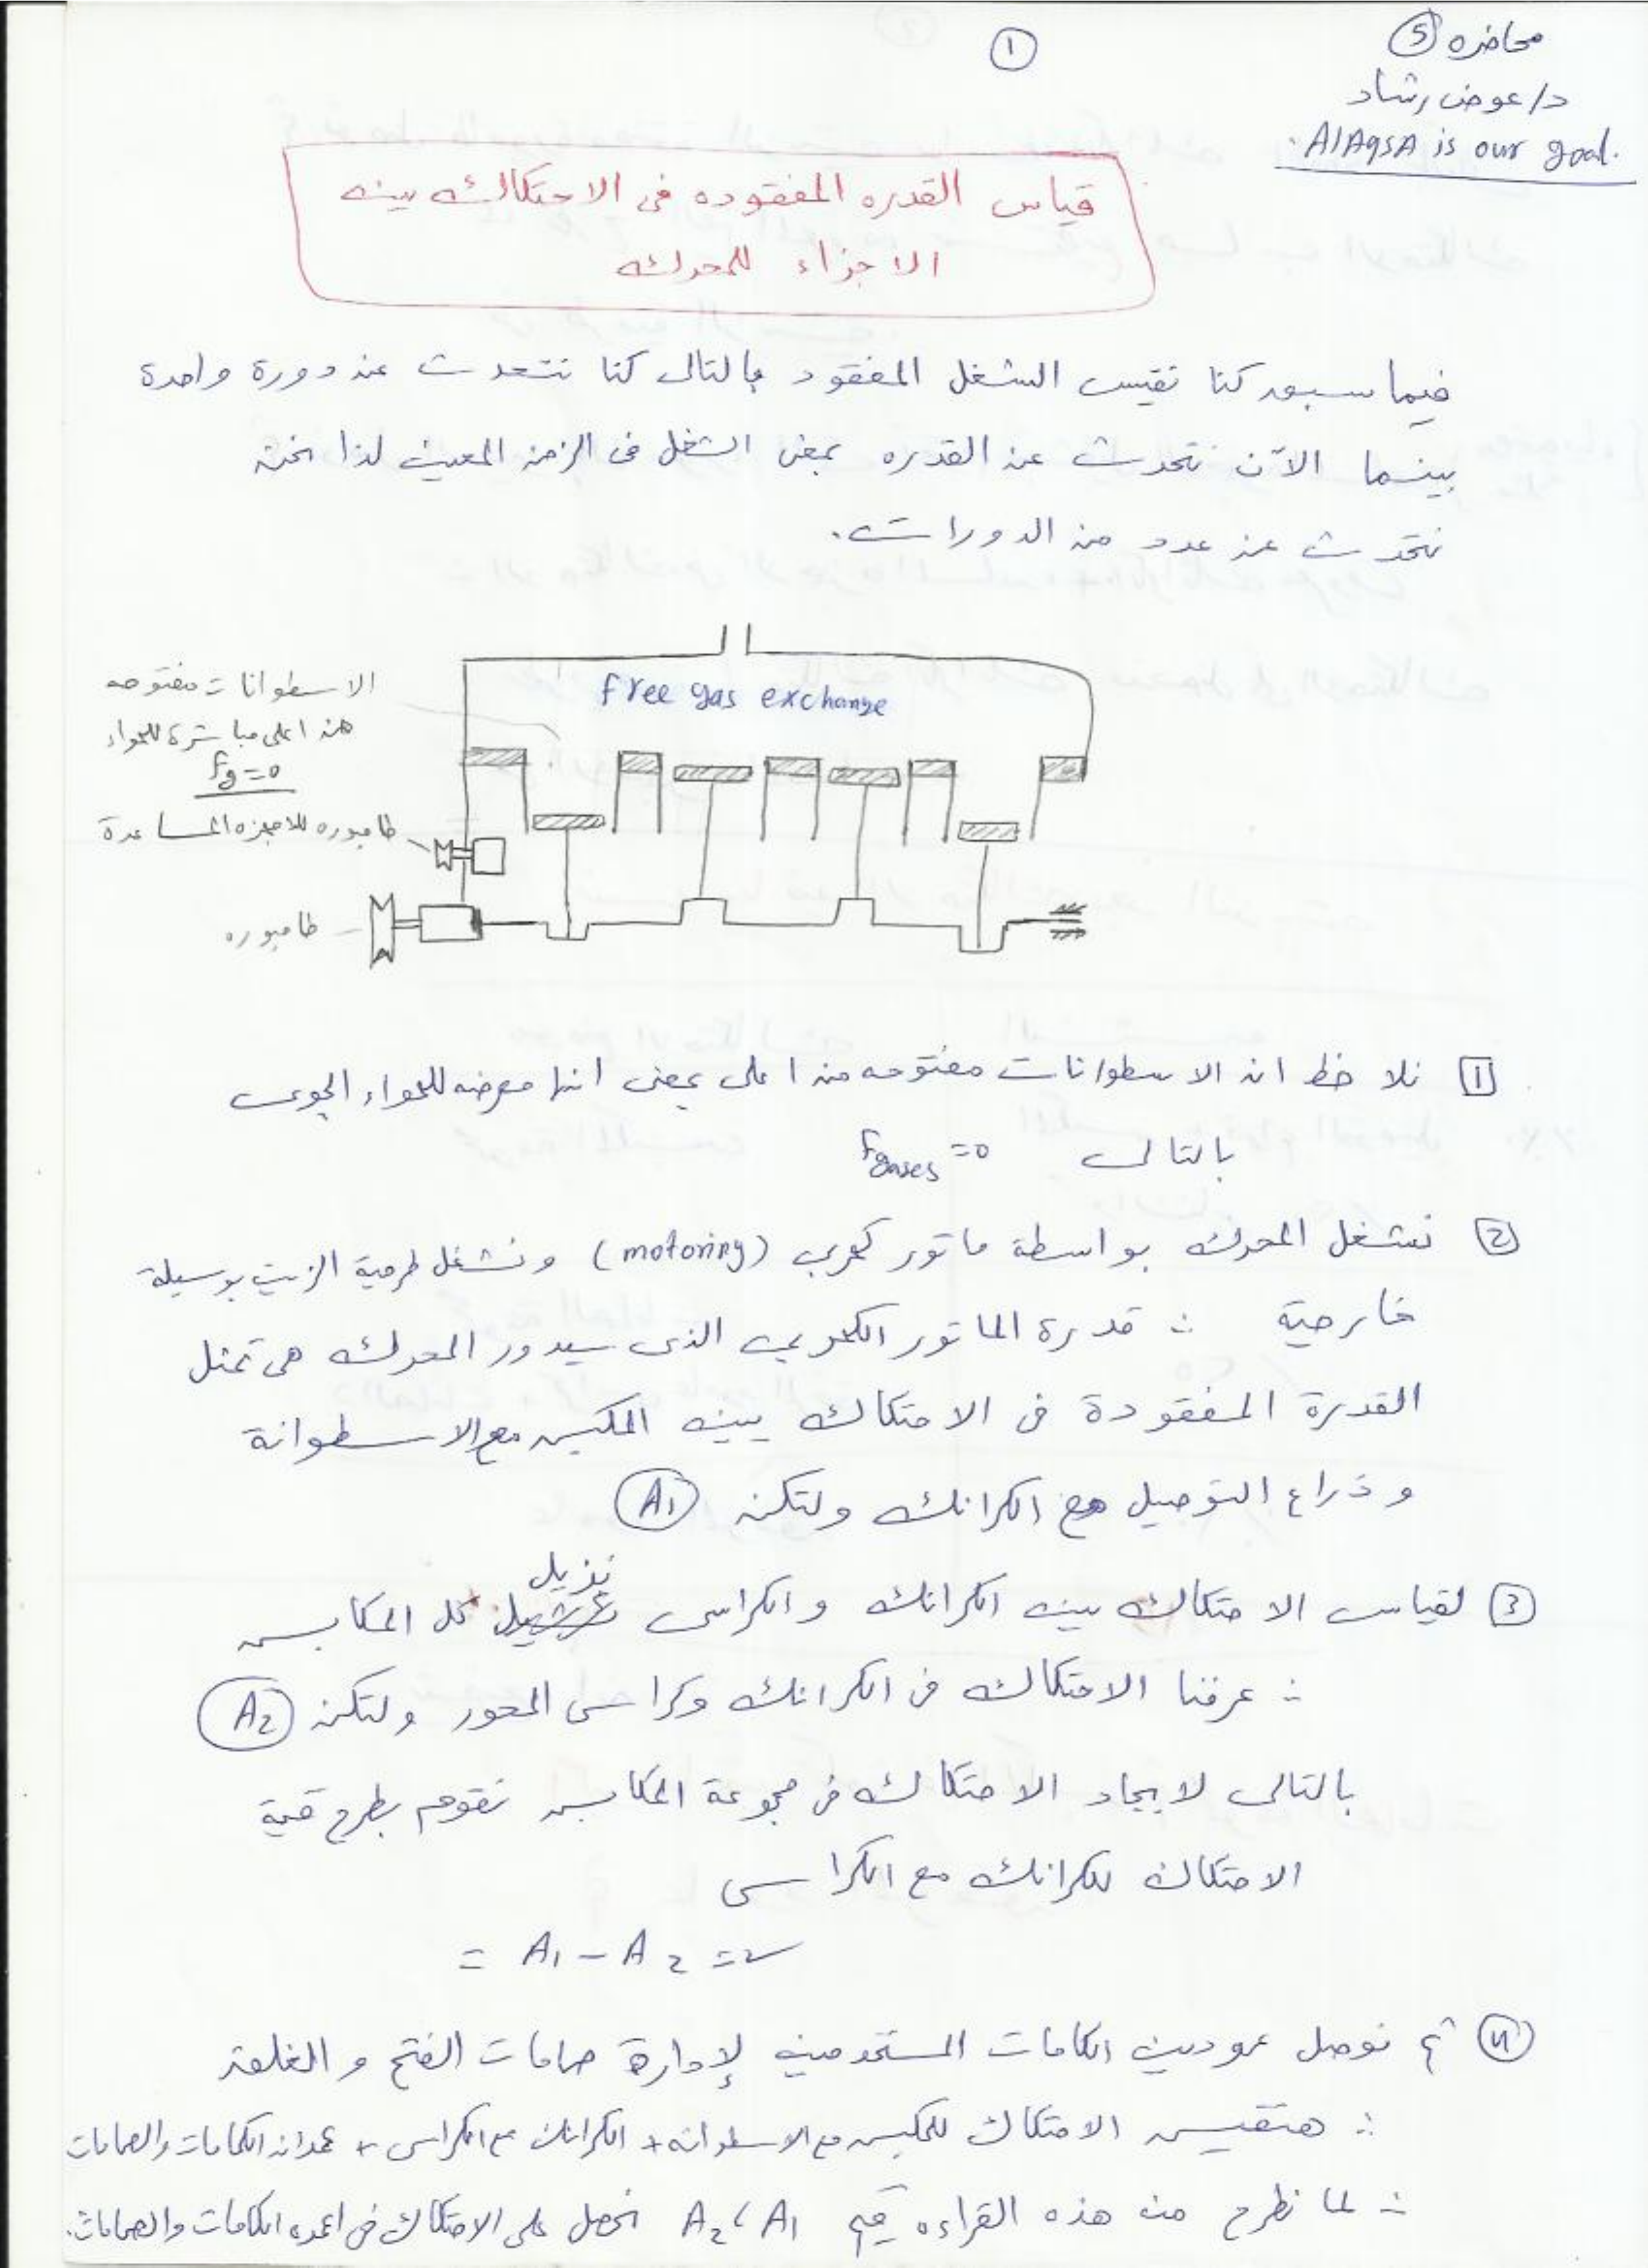 محاضره ⑤
①
د/عوض رشاد
AlAqsA is our goal.
قياس القدره المفقوده فى الاحتكاك بين
الاجزاء للمحرك
فيما سبق كنا نقيس الشغل المفقود بالتالى كنا نتحدث عن دورة واحدة
بينما الآن نتحدث عن القدره بمعنى الشغل فى الزمن المعين لذا نحن
نتحدث عن عدد من الدورات.
الاسطوانات مفتوحه
من اعلى مباشرة للهواء
Fg=0
free gas exchange
طامبوره للاجهزه المساعدة
طامبوره
1 نلاحظ ان الاسطوانات مفتوحه من اعلى بمعنى انها معرضه للهواء الجوى
بالتالى Fgases =0
2 نشغل المحرك بواسطة ماتور كهربى (motoring) ونشغل طرمبة الزيت بوسيلة
خارجية ∴ قدرة الماتور الكهربى الذى سيدور المحرك هى تمثل
القدرة المفقودة فى الاحتكاك بين المكبس مع الاسطوانة
وذراع التوصيل مع الكرانك ولتكن A1
3 لقياس الاحتكاك بين الكرانك والكراسى نزيل كل المكابس
∴ عرفنا الاحتكاك فى الكرانك وكراسى المحور ولتكن A2
بالتالى لايجاد الاحتكاك فى مجموعة المكابس نقوم بطرح قيمة
الاحتكاك للكرانك مع الكراسى
= A1 - A2 =
4 ثم نوصل عمودين الكامات المستخدمين لإدارة صمامات الفتح والغلق
∴ هنقيس الاحتكاك للمكبس مع الاسطوانه + الكرانك مع الكراسى + عمدان الكامات والصمامات
∴ لما نطرح من هذه القراءه قيم A1 ، A2 نحصل على الاحتكاك فى اعمده الكامات والصمامات.